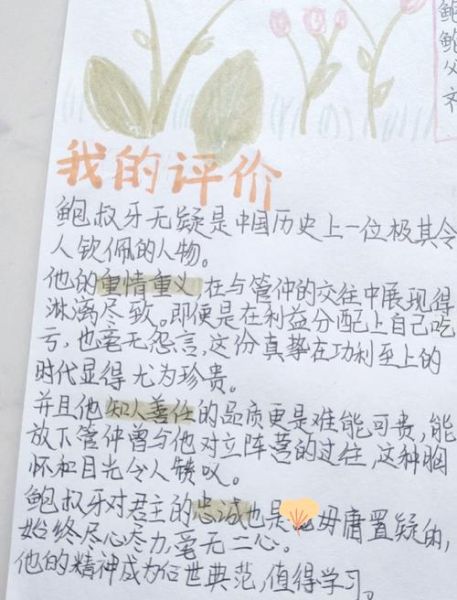 我的评价
鲍叔牙无疑是中国历史上一位极其令
人钦佩的人物。
他的重情重义,在与管仲的交往中展现得
淋漓尽致。即便是在利益分配上自己吃
亏,也毫无怨言,这份真挚在功利至上的
时代显得尤为珍贵。
并且他知人善任的品质更是难能可贵,能
放下管仲曾与他对立阵营的过往,这种胸
怀和目光令人赞叹。
鲍叔牙对君主的忠诚也是毋庸置疑的,
始终尽心尽力,毫无二心。
他的精神成为后世典范,值得学习。
鲍
鲍
父